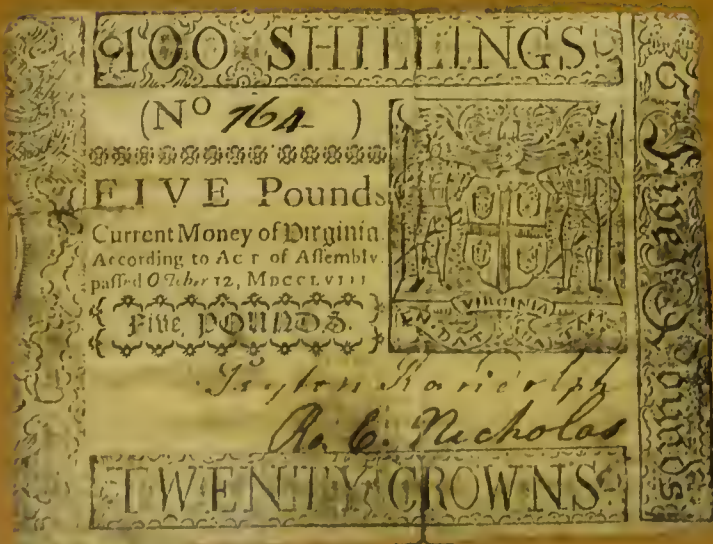 100 SHILLINGS
(No 764 )
FIVE Pounds
Current Money of Virginia.
According to ACT of Aſſembly.
paſſed October 12, MDCCLVIII
Five POUNDS.
VIRGINIA
Peyton Randolph
Ro. C. Nicholas
TWENTY CROWNS
Five Pounds